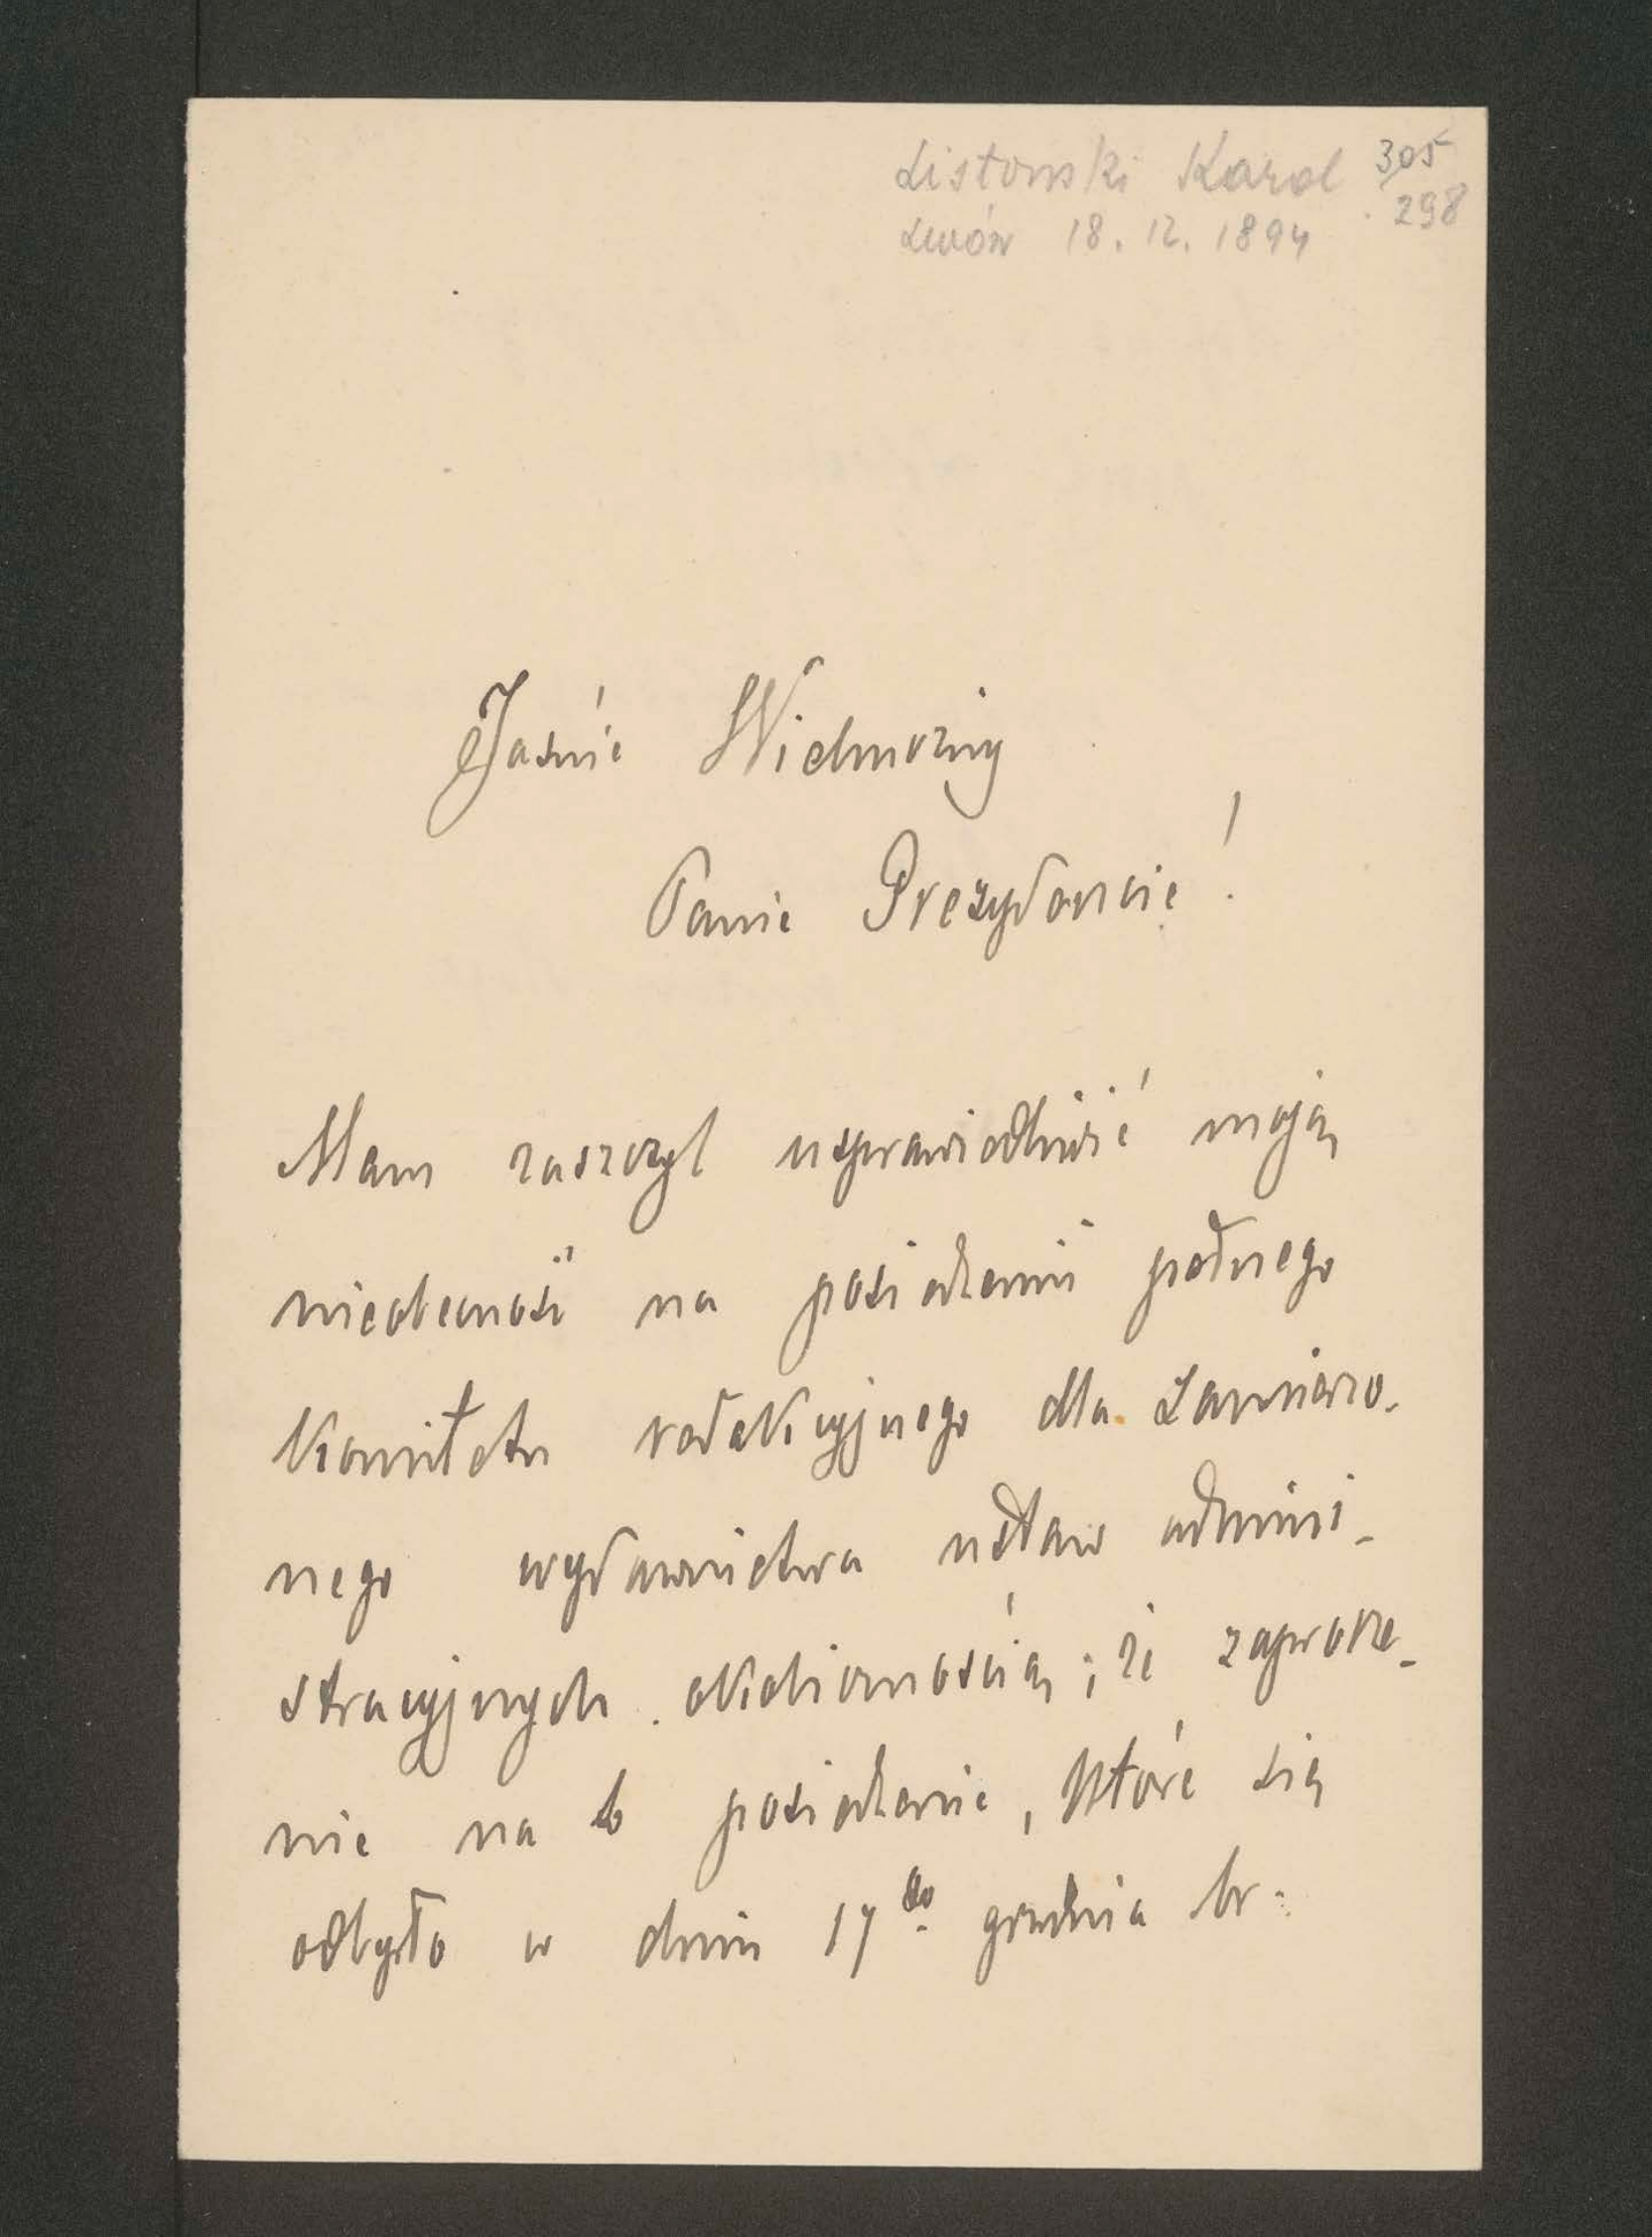 Listowski Karol 305
Lwów 18.12.1894 298
Jaśnie Wielmożny
Panie Prezydencie!
Mam zaszczyt usprawiedliwić moją
nieobecność na posiedzeniu pełnego
Komitetu redakcyjnego dla zamierzo-
nego wydawnictwa ustaw admini-
stracyjnych okolicznością; że zaprosze-
nie na to posiedzenie, które się
odbyło w dniu 17go grudnia br: